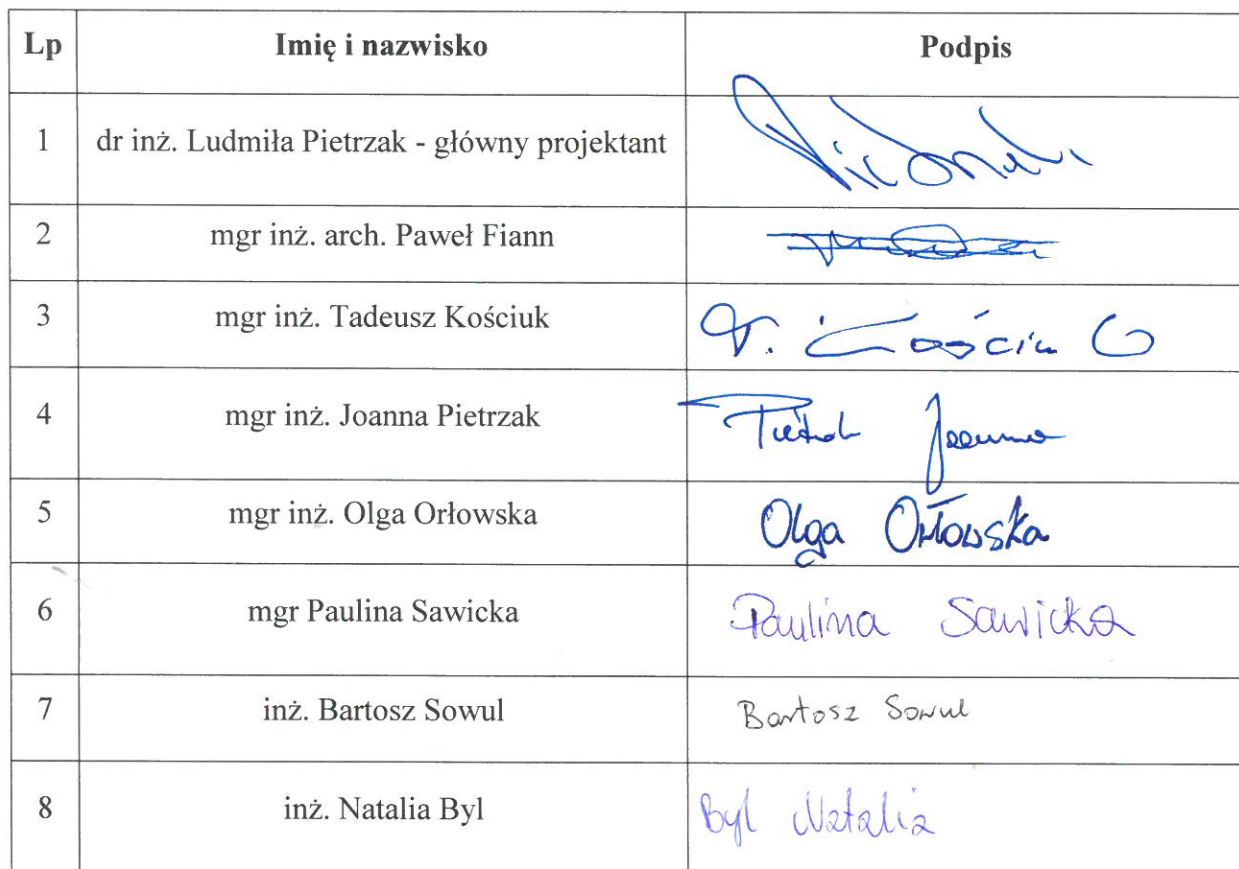 Lp Imię i nazwisko Podpis
1 dr inż. Ludmiła Pietrzak - główny projektant
2 mgr inż. arch. Paweł Fiann
3 mgr inż. Tadeusz Kościuk
4 mgr inż. Joanna Pietrzak Joanna
5 mgr inż. Olga Orłowska Olga Orłowska
6 mgr Paulina Sawicka Paulina Sawicka
7 inż. Bartosz Sowul Bartosz Sowul
8 inż. Natalia Byl Byl Natalia